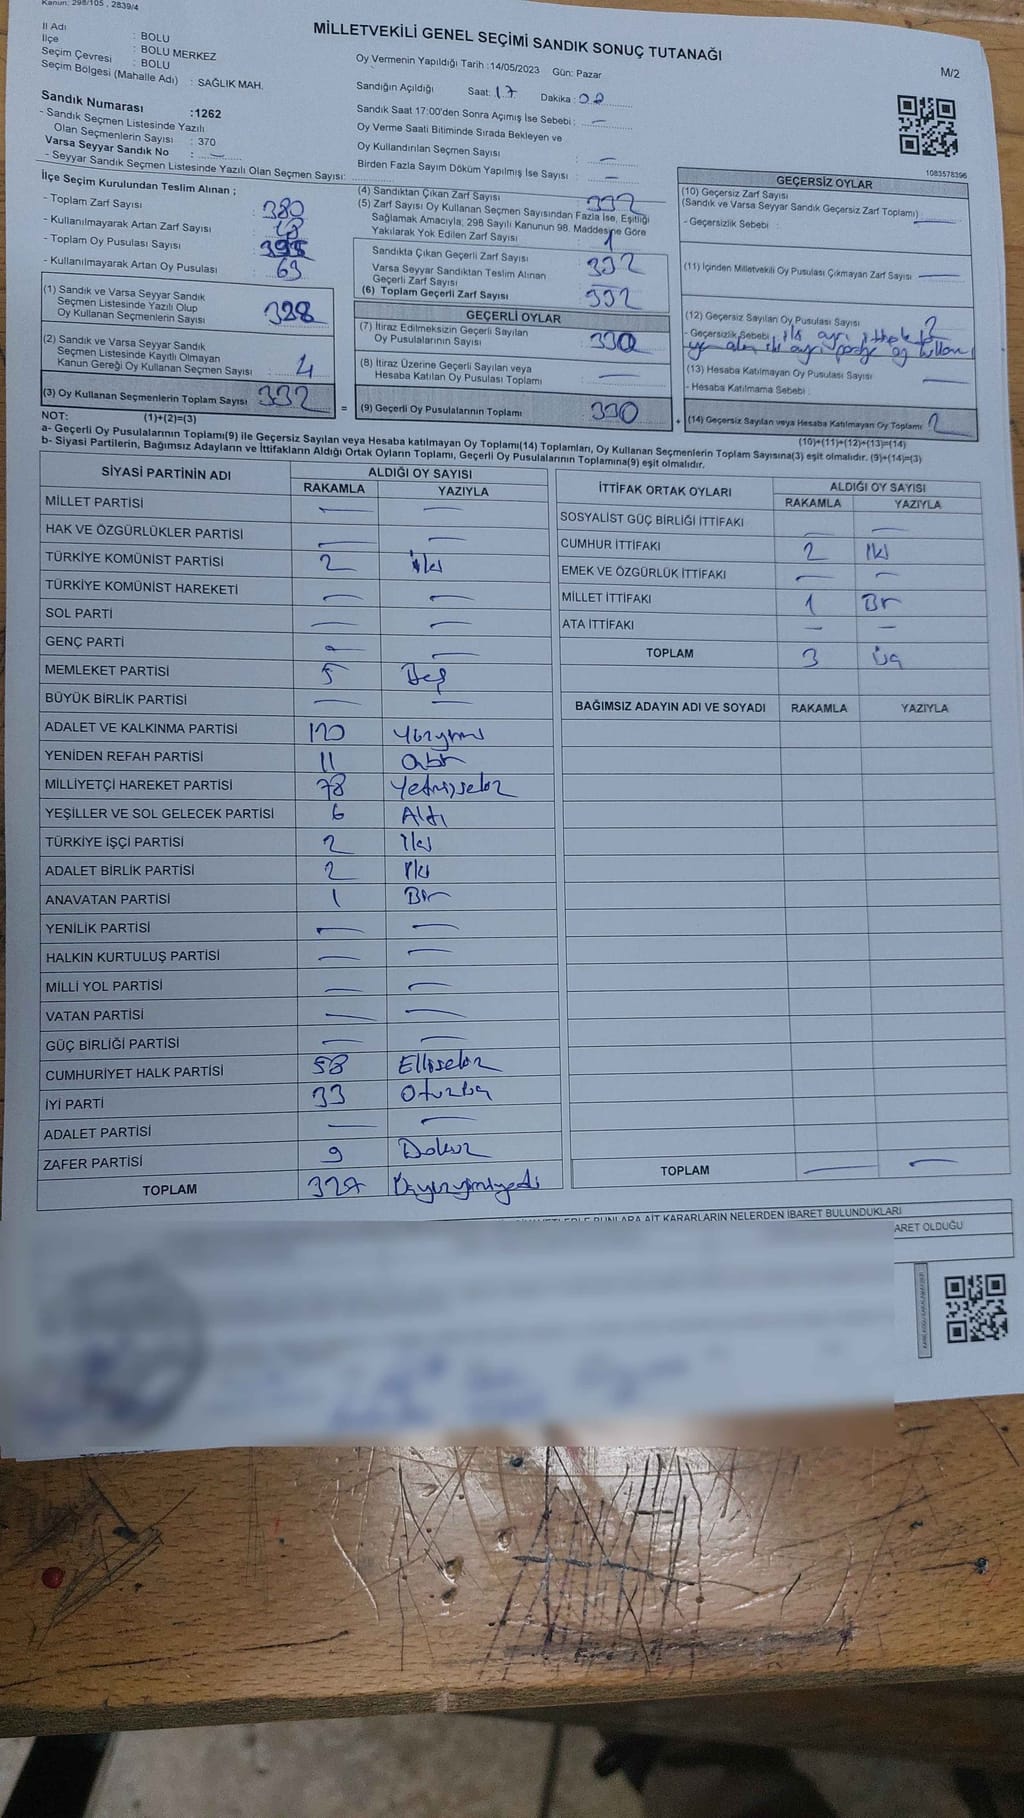 Kanun: 298/105 , 2839/4
MİLLETVEKİLİ GENEL SEÇİMİ SANDIK SONUÇ TUTANAĞI
M/2
İl Adı : BOLU
İlçe : BOLU MERKEZ
Seçim Çevresi : BOLU
Seçim Bölgesi (Mahalle Adı) : SAĞLIK MAH.
Sandık Numarası :1262
- Sandık Seçmen Listesinde Yazılı
Olan Seçmenlerin Sayısı : 370
Varsa Seyyar Sandık No : —
- Seyyar Sandık Seçmen Listesinde Yazılı Olan Seçmen Sayısı:
Oy Vermenin Yapıldığı Tarih :14/05/2023 Gün: Pazar
Sandığın Açıldığı Saat: 17 Dakika :
Sandık Saat 17:00'den Sonra Açımış İse Sebebi : —
Oy Verme Saati Bitiminde Sırada Bekleyen ve
Oy Kullandırılan Seçmen Sayısı : —
Birden Fazla Sayım Döküm Yapılmış İse Sayısı : —
1083578396
İlçe Seçim Kurulundan Teslim Alınan ;
- Toplam Zarf Sayısı : 380
- Kullanılmayarak Artan Zarf Sayısı :
- Toplam Oy Pusulası Sayısı :
- Kullanılmayarak Artan Oy Pusulası : 63
(1) Sandık ve Varsa Seyyar Sandık
Seçmen Listesinde Yazılı Olup
Oy Kullanan Seçmenlerin Sayısı : 328
(2) Sandık ve Varsa Seyyar Sandık
Seçmen Listesinde Kayıtlı Olmayan
Kanun Gereği Oy Kullanan Seçmen Sayısı : 4
(3) Oy Kullanan Seçmenlerin Toplam Sayısı 332
(1)+(2)=(3)
(4) Sandıktan Çıkan Zarf Sayısı : 332
(5) Zarf Sayısı Oy Kullanan Seçmen Sayısından Fazla İse, Eşitliği
Sağlamak Amacıyla, 298 Sayılı Kanunun 98. Maddesine Göre
Yakılarak Yok Edilen Zarf Sayısı :
Sandıkta Çıkan Geçerli Zarf Sayısı : 332
Varsa Seyyar Sandıktan Teslim Alınan
Geçerli Zarf Sayısı :
(6) Toplam Geçerli Zarf Sayısı : 332
GEÇERLİ OYLAR
(7) İtiraz Edilmeksizin Geçerli Sayılan
Oy Pusulalarının Sayısı : 330
(8) İtiraz Üzerine Geçerli Sayılan veya
Hesaba Katılan Oy Pusulası Toplamı : —
= (9) Geçerli Oy Pusulalarının Toplamı 330
GEÇERSİZ OYLAR
(10) Geçersiz Zarf Sayısı
(Sandık ve Varsa Seyyar Sandık Geçersiz Zarf Toplamı) : —
- Geçersizlik Sebebi :
(11) İçinden Milletvekili Oy Pusulası Çıkmayan Zarf Sayısı —
(12) Geçersiz Sayılan Oy Pusulası Sayısı : 2
- Geçersizlik Sebebi : iki ayrı
iki ayrı
(13) Hesaba Katılmayan Oy Pusulası Sayısı : —
- Hesaba Katılmama Sebebi :
+ (14) Geçersiz Sayılan veya Hesaba Katılmayan Oy Toplamı 2
(10)+(11)+(12)+(13)=(14)
NOT:
a- Geçerli Oy Pusulalarının Toplamı(9) ile Geçersiz Sayılan veya Hesaba katılmayan Oy Toplamı(14) Toplamları, Oy Kullanan Seçmenlerin Toplam Sayısına(3) eşit olmalıdır. (9)+(14)=(3)
b- Siyasi Partilerin, Bağımsız Adayların ve İttifakların Aldığı Ortak Oyların Toplamı, Geçerli Oy Pusulalarının Toplamına(9) eşit olmalıdır.
SİYASİ PARTİNİN ADI ALDIĞI OY SAYISI
RAKAMLA YAZIYLA
MİLLET PARTİSİ — —
HAK VE ÖZGÜRLÜKLER PARTİSİ — —
TÜRKİYE KOMÜNİST PARTİSİ 2 iki
TÜRKİYE KOMÜNİST HAREKETİ — —
SOL PARTİ — —
GENÇ PARTİ — —
MEMLEKET PARTİSİ 5 Beş
BÜYÜK BİRLİK PARTİSİ — —
ADALET VE KALKINMA PARTİSİ 120 Yüzyirmi
YENİDEN REFAH PARTİSİ 11 Onbir
MİLLİYETÇİ HAREKET PARTİSİ 78 Yetmişsekiz
YEŞİLLER VE SOL GELECEK PARTİSİ 6 Altı
TÜRKİYE İŞÇİ PARTİSİ 2 İki
ADALET BİRLİK PARTİSİ 2 İki
ANAVATAN PARTİSİ 1 Bir
YENİLİK PARTİSİ — —
HALKIN KURTULUŞ PARTİSİ — —
MİLLİ YOL PARTİSİ — —
VATAN PARTİSİ — —
GÜÇ BİRLİĞİ PARTİSİ — —
CUMHURİYET HALK PARTİSİ 58 Ellisekiz
İYİ PARTİ 33 Otuzüç
ADALET PARTİSİ — —
ZAFER PARTİSİ 9 Dokuz
TOPLAM 327 Üçyüzyirmiyedi
İTTİFAK ORTAK OYLARI ALDIĞI OY SAYISI
RAKAMLA YAZIYLA
SOSYALİST GÜÇ BİRLİĞİ İTTİFAKI — —
CUMHUR İTTİFAKI 2 İki
EMEK VE ÖZGÜRLÜK İTTİFAKI — —
MİLLET İTTİFAKI 1 Bir
ATA İTTİFAKI — —
TOPLAM 3 Üç
BAĞIMSIZ ADAYIN ADI VE SOYADI RAKAMLA YAZIYLA
TOPLAM — —
BUNLARA AİT KARARLARIN NELERDEN İBARET BULUNDUKLARI
ARET OLDUĞU